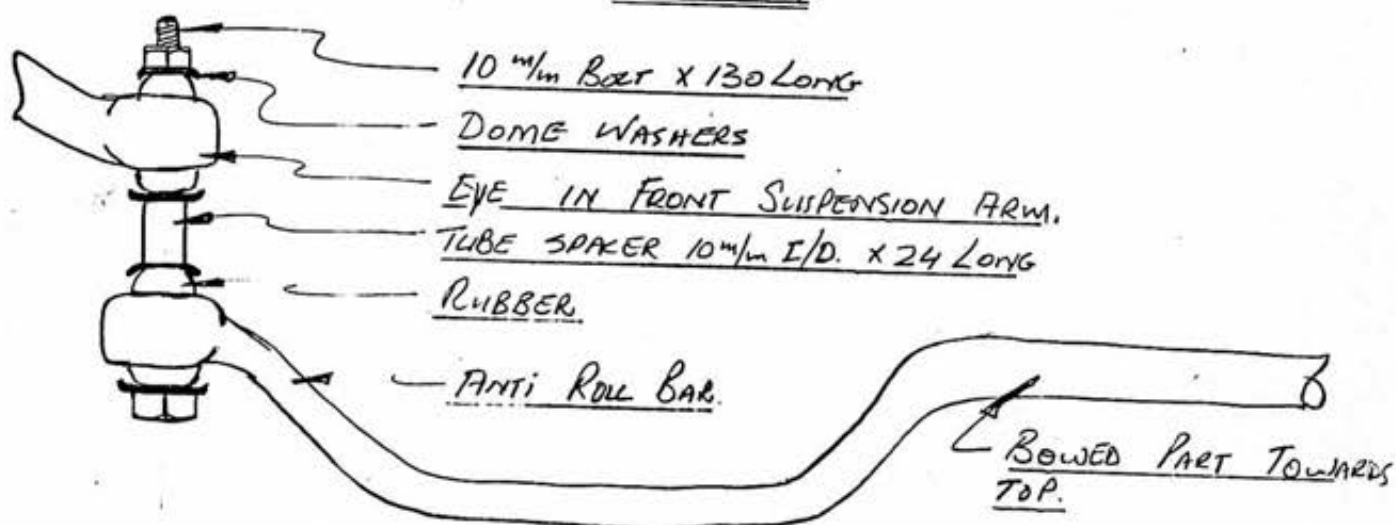 10 m/m BOLT X 130 LONG
DOME WASHERS
EYE IN FRONT SUSPENSION ARM.
TUBE SPACER 10 m/m I/D. X 24 LONG
RUBBER
ANTI ROLL BAR.
BOWED PART TOWARDS
TOP.